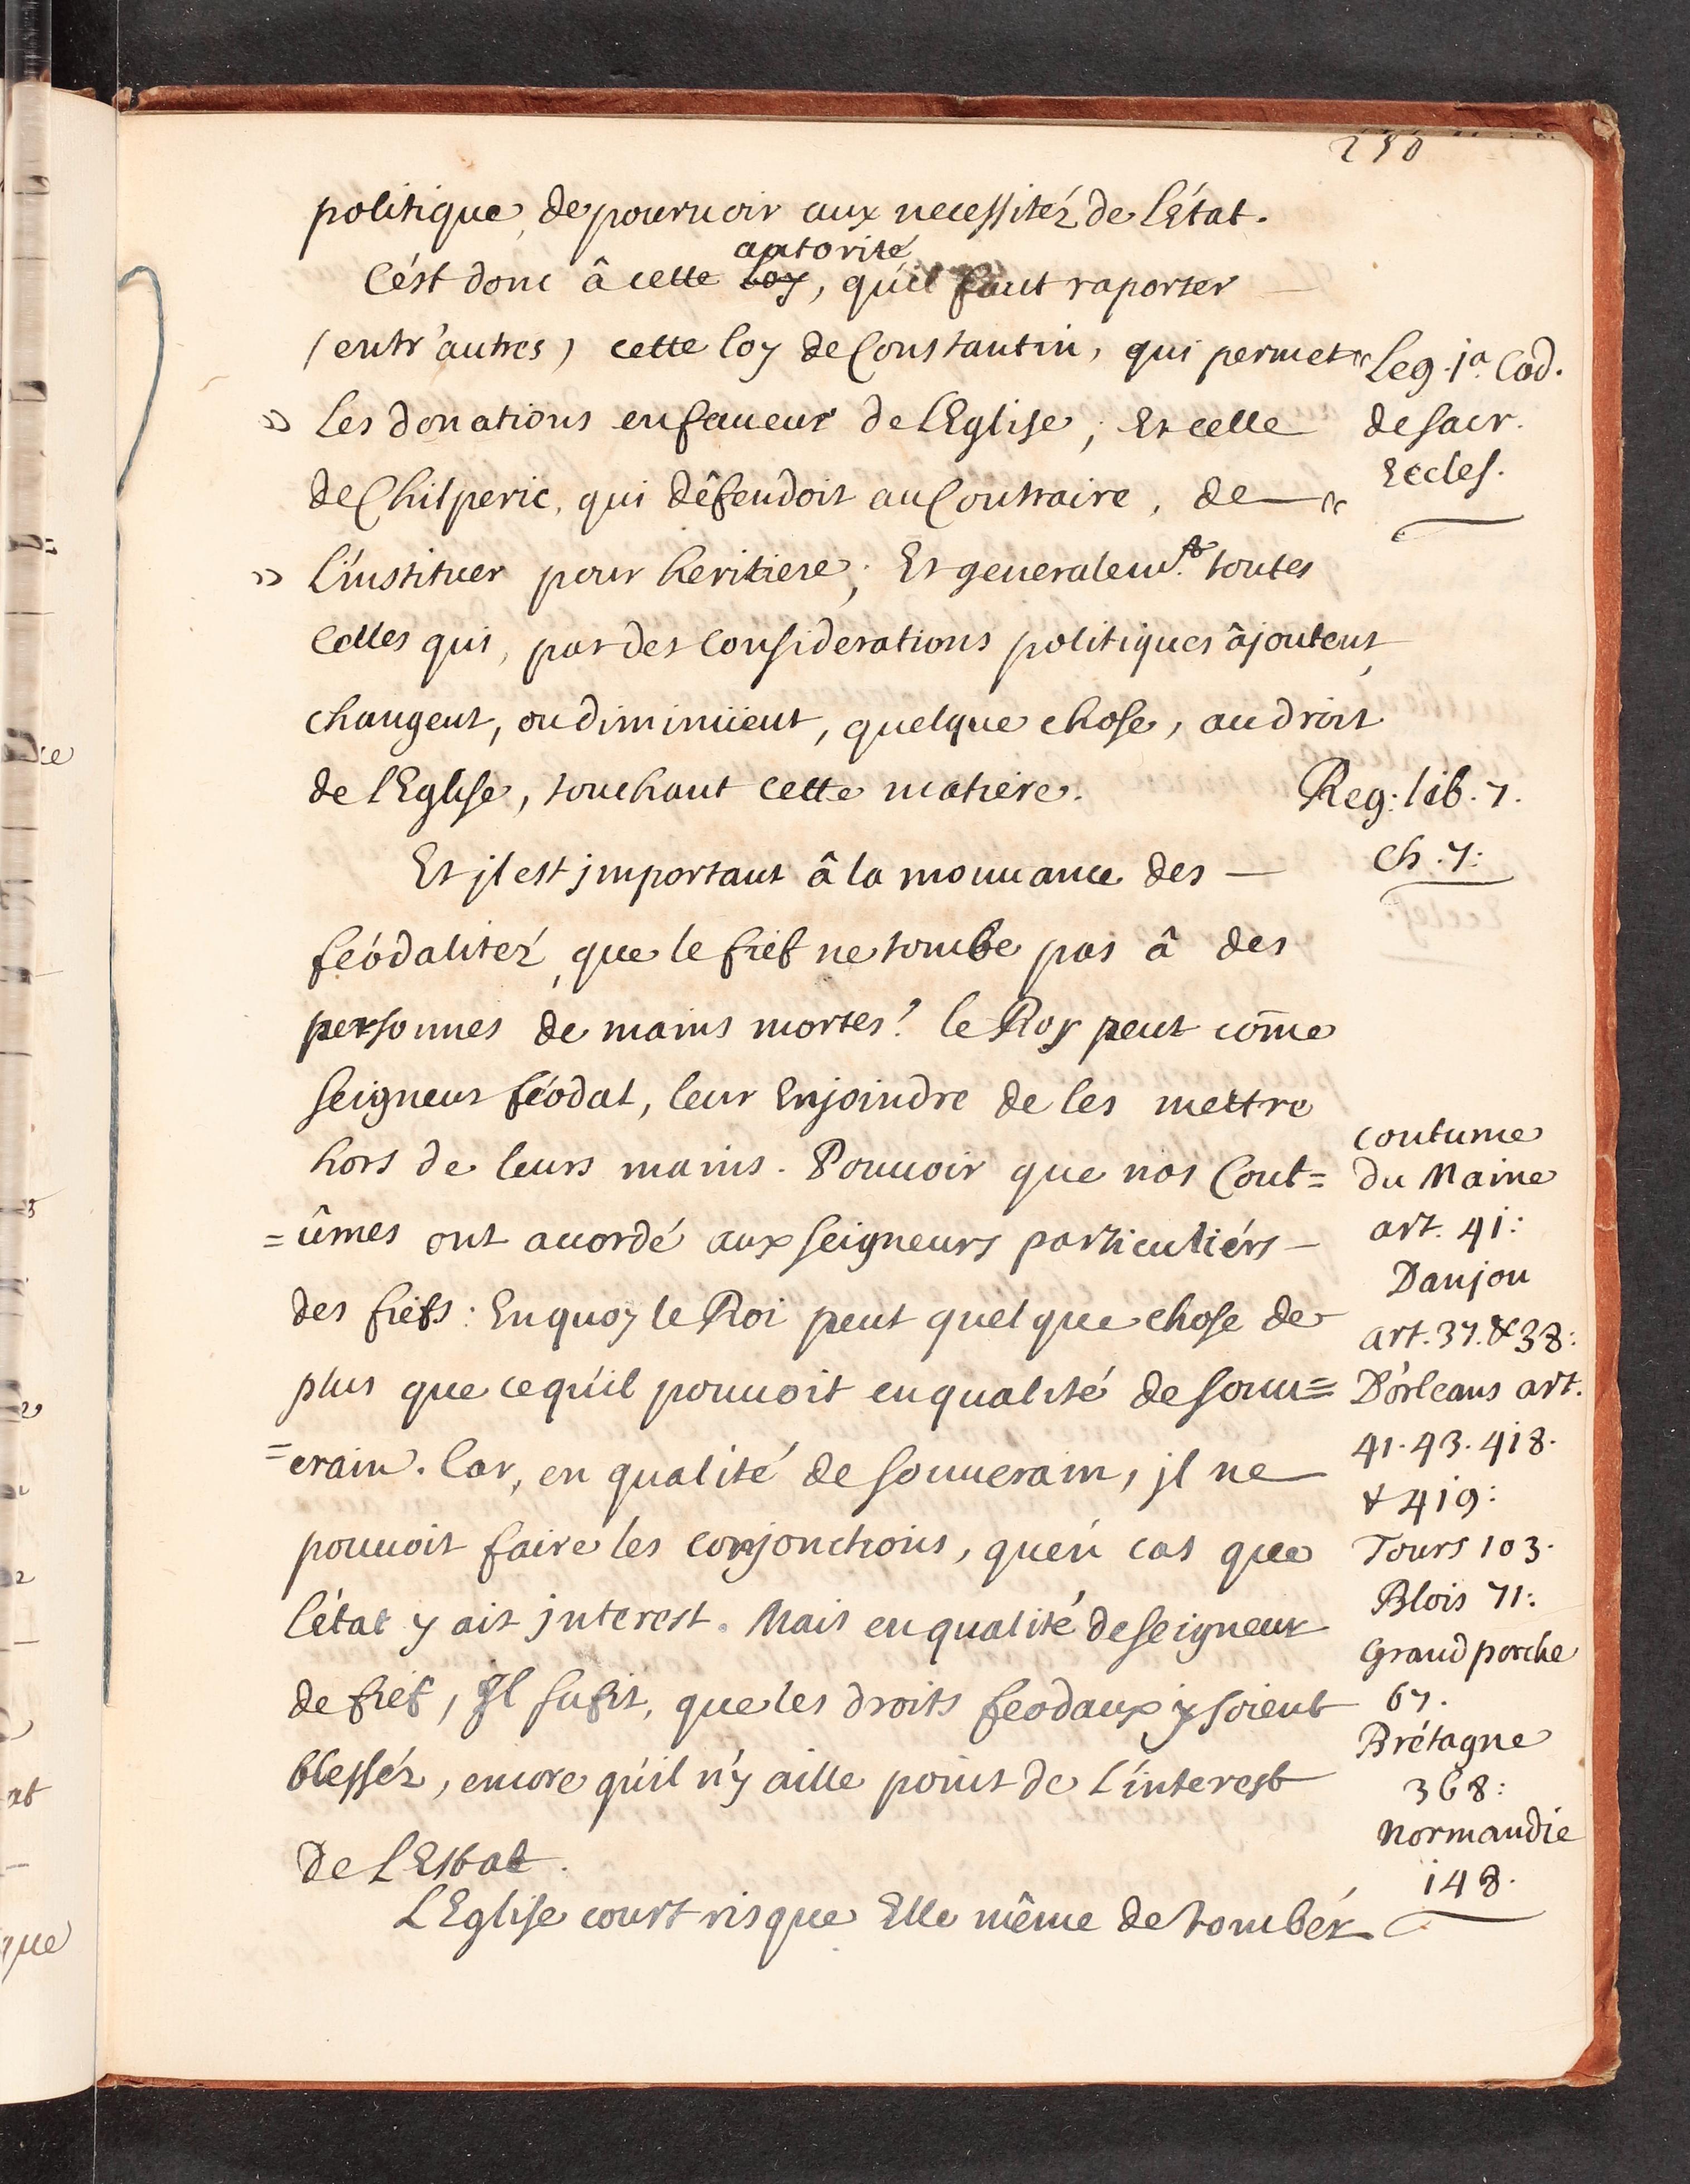 politique, de pouruoir aux necessitéz de l'Etat.
C'est donc â cette autorité loy, qu'il faut raporter
(entr'autres) cette loy de Constantin, qui permet "
» les donations en faueur de l'Eglise; Et celle
de Chilperic, qui dêfendoit au Contraire, de — "
» L'instituer pour heritiere; Et generalem.t toutes
Celles qui, par des Considerations politiques âjoutent,
changent, ou diminüent, quelque chose, au droit
de l'Eglise, touchant cette matiere.
Et jl est jmportant â la mouuance des —
féodalitéz, que le fief ne tombe pas â des
personnes de mains mortes? le Roy peut cōme
seigneur féodal, leur Enjoindre de les mettre
hors de leurs mains. Pouuoir que nos Cout=
=ûmes ont acordé aux seigneurs particuliérs —
des fiefs: En quoy le Roi peut quelque chose de
plus que ce qu'il pouuoit en qualité de souu=
=erain. Car, en qualité de souuerain, jl ne —
pouuoit faire les conjonctions, qu'en cas que
l'état y ait jnterest. Mais en qualité de seigneur
de fief, Jl sufit, que les droits feodaux y soient
blessés, encore qu'il n'y aille point de L'interest
de L'Estat.
L'Eglise court risque Elle même de tombér
Leg. 1.a Cod.
de sacr.
Eccles.
Reg: lib. 7.
Ch. 7:
coutume
du Maine
art. 41:
Danjou
art. 37. & 38:
D'orleans art.
41. 43. 418.
& 419:
Tours 103.
Blois 71:
Grand porche
67.
Brétagne
368:
Normandie
148.